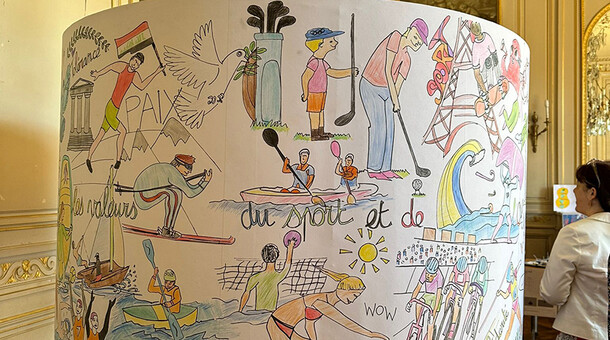 PAIX
les valeurs du sport et de
WOW
8